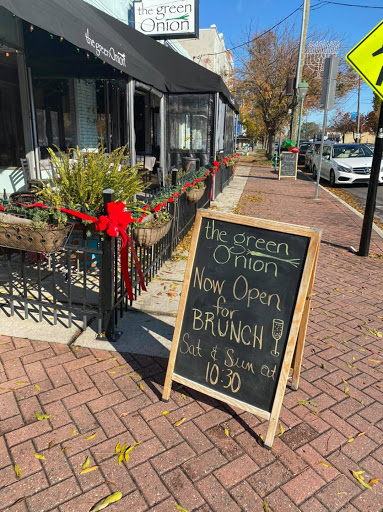 the green
Onion
the green Onion
the green
Onion
Now Open
for
BRUNCH
Sat & Sun at
10:30